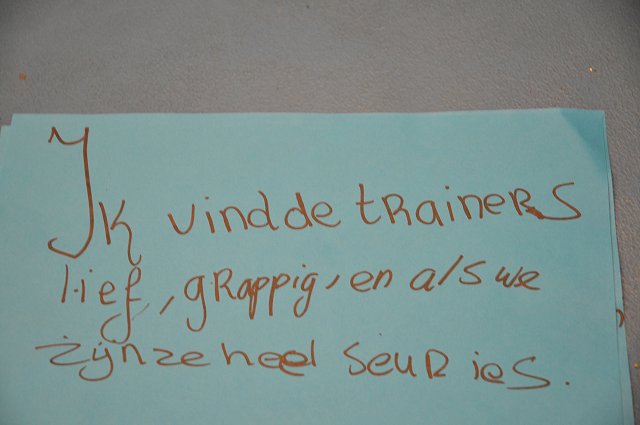 Ik vind de trainers
lief, grappig, en als we
zijn ze heel seuries.